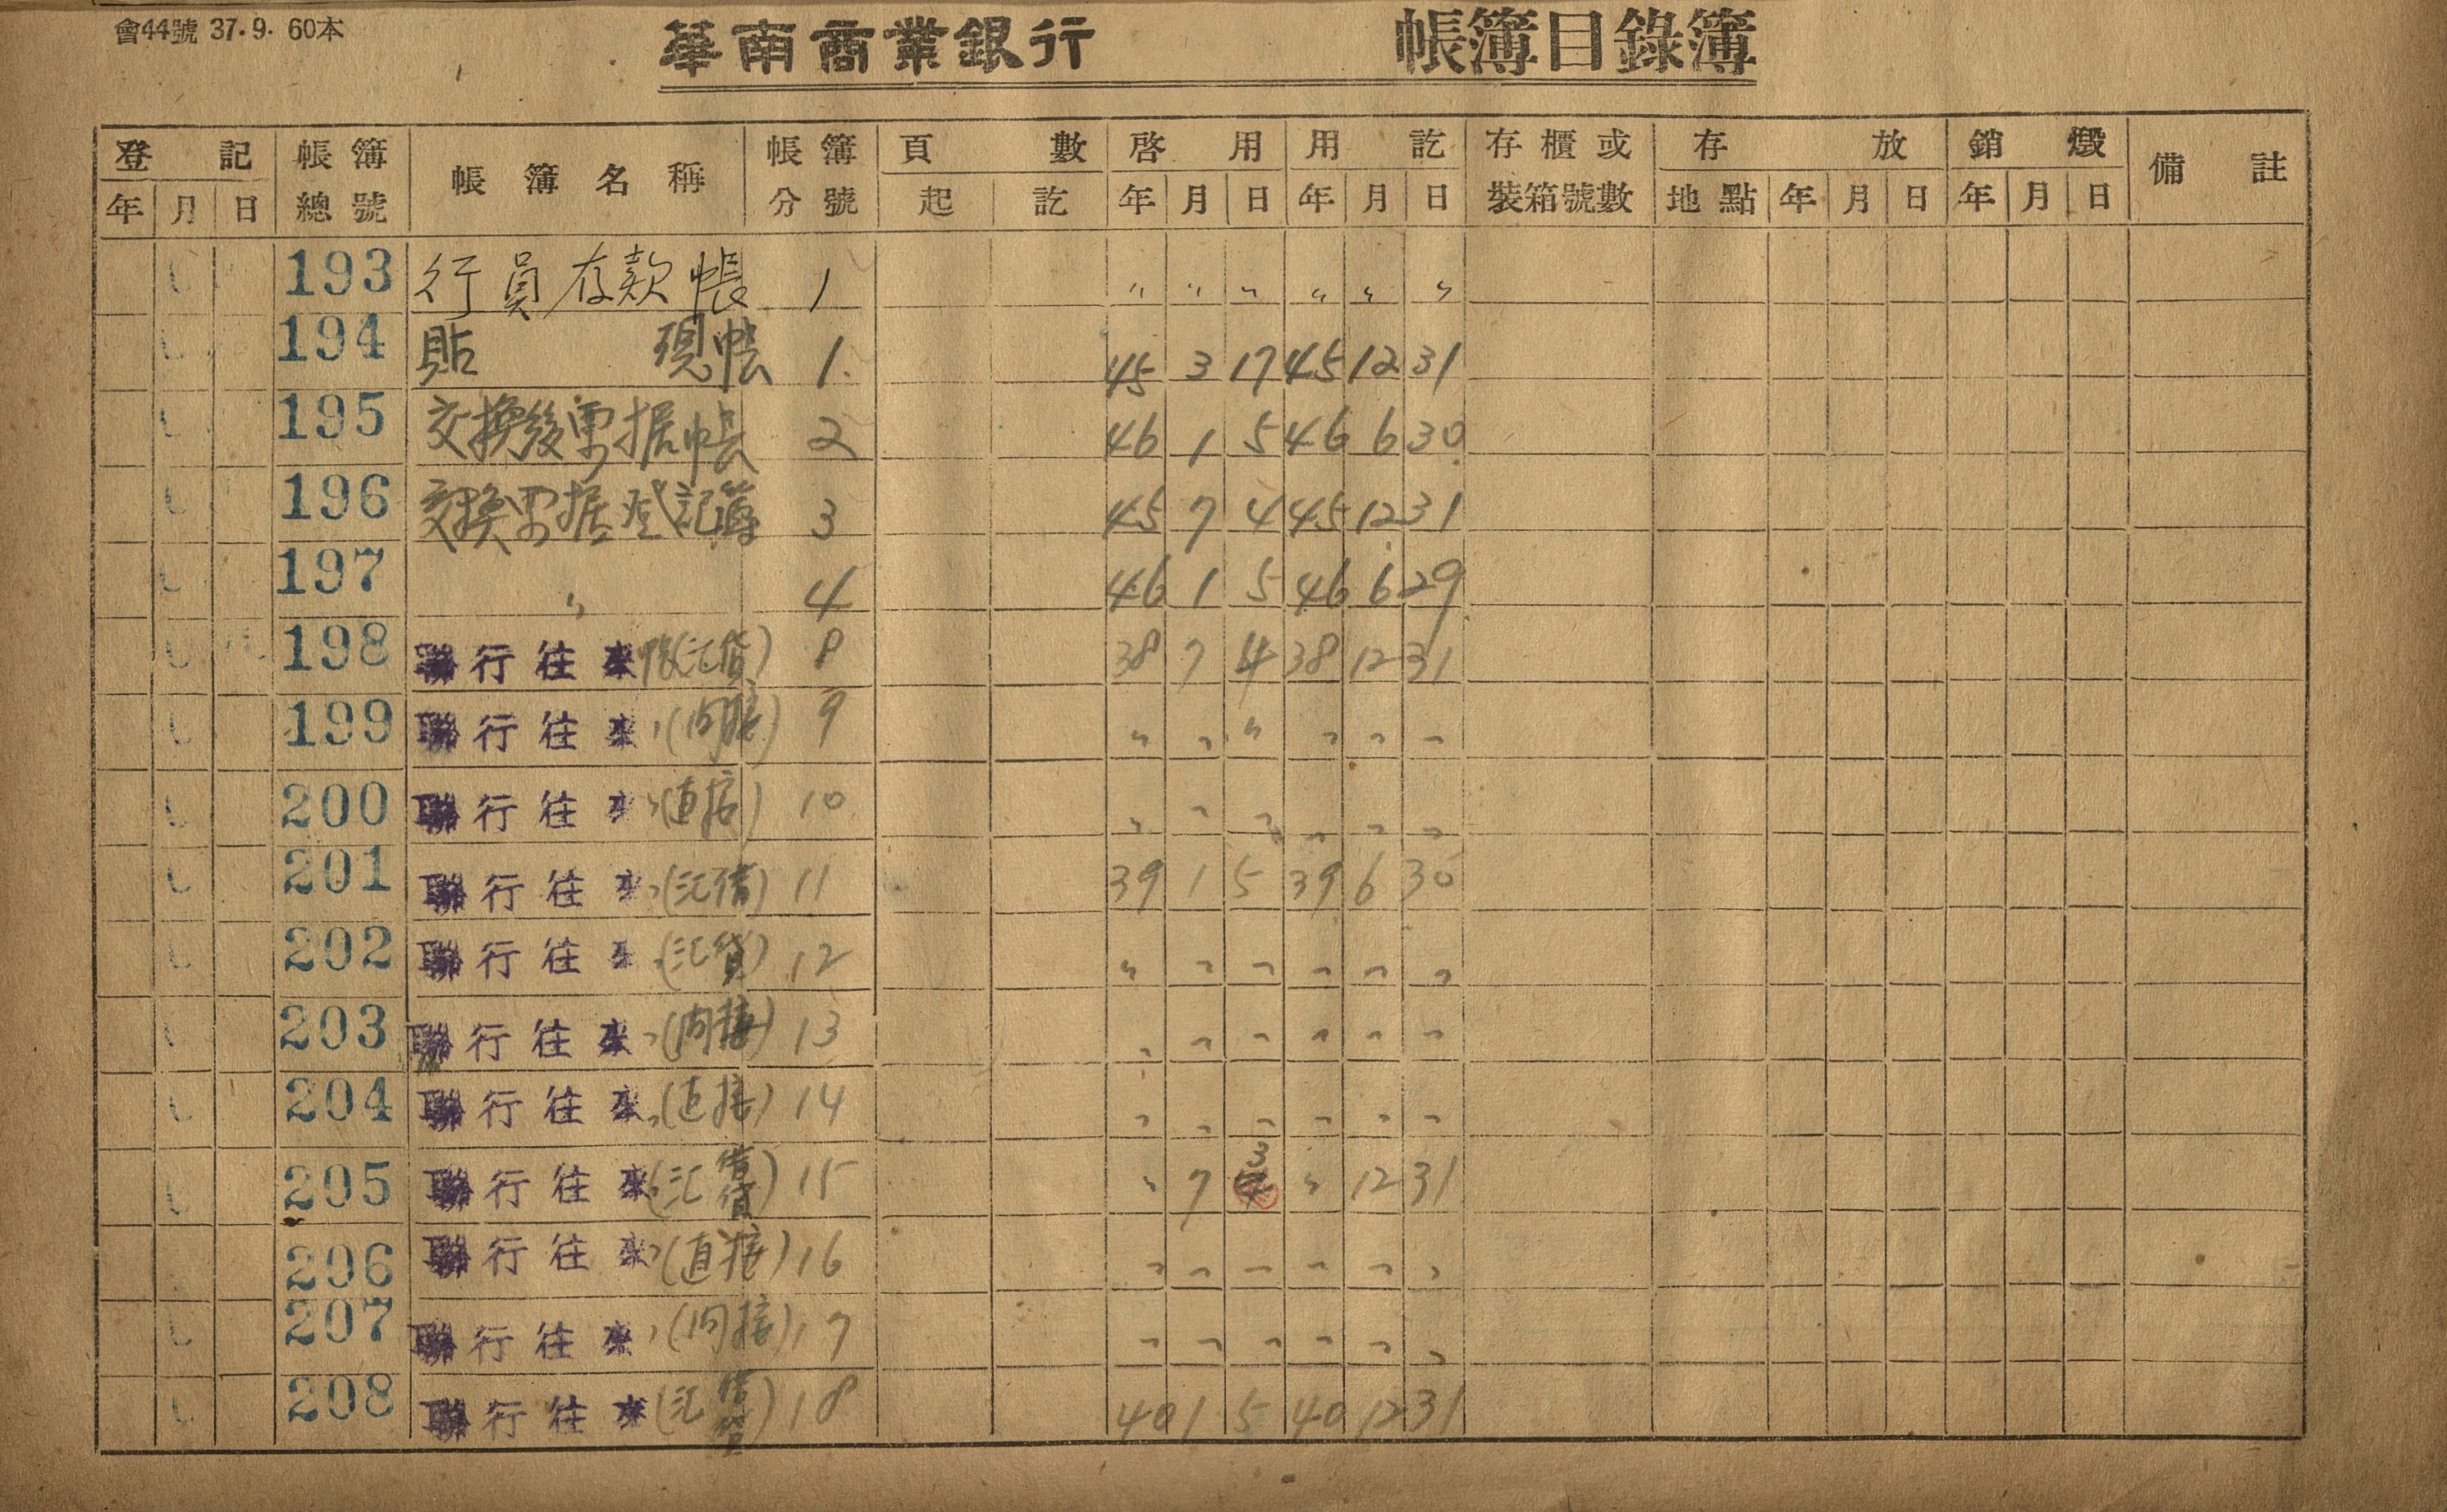 會44號 37.9. 60本
華南商業銀行 帳簿目錄簿
登記 帳簿 帳簿名稱 帳簿 頁數 啓用 用訖 存櫃或 存放 銷燬 備註
年 月 日 總號 分號 起 訖 年 月 日 年 月 日 裝箱號數 地點 年 月 日 年 月 日
193 行員存款帳 1 〃 〃 〃 〃 〃 〃
194 貼現帳 1 45 3 17 45 12 31
195 交換後票据帳 2 46 1 5 46 6 30
196 交換票据登記簿 3 45 7 4 45 12 31
197 〃 4 46 1 5 46 6 29
198 聯行往來帳(汇貸) 8 38 7 4 38 12 31
199 聯行往來〃(间接) 9 〃 〃 〃 〃 〃 〃
200 聯行往來〃(直接) 10 〃 〃 〃 〃 〃 〃
201 聯行往來〃(汇借) 11 39 1 5 39 6 30
202 聯行往來〃(汇貸) 12 〃 〃 〃 〃 〃 〃
203 聯行往來〃(间接) 13 〃 〃 〃 〃 〃 〃
204 聯行往來〃(直接) 14 〃 〃 〃 〃 〃 〃
205 聯行往來〃(汇借貸) 15 〃 7 3 〃 12 31
206 聯行往來〃(直接) 16 〃 〃 〃 〃 〃 〃
207 聯行往來〃(间接) 17 〃 〃 〃 〃 〃 〃
208 聯行往來(汇借貸) 18 40 1 5 40 12 31